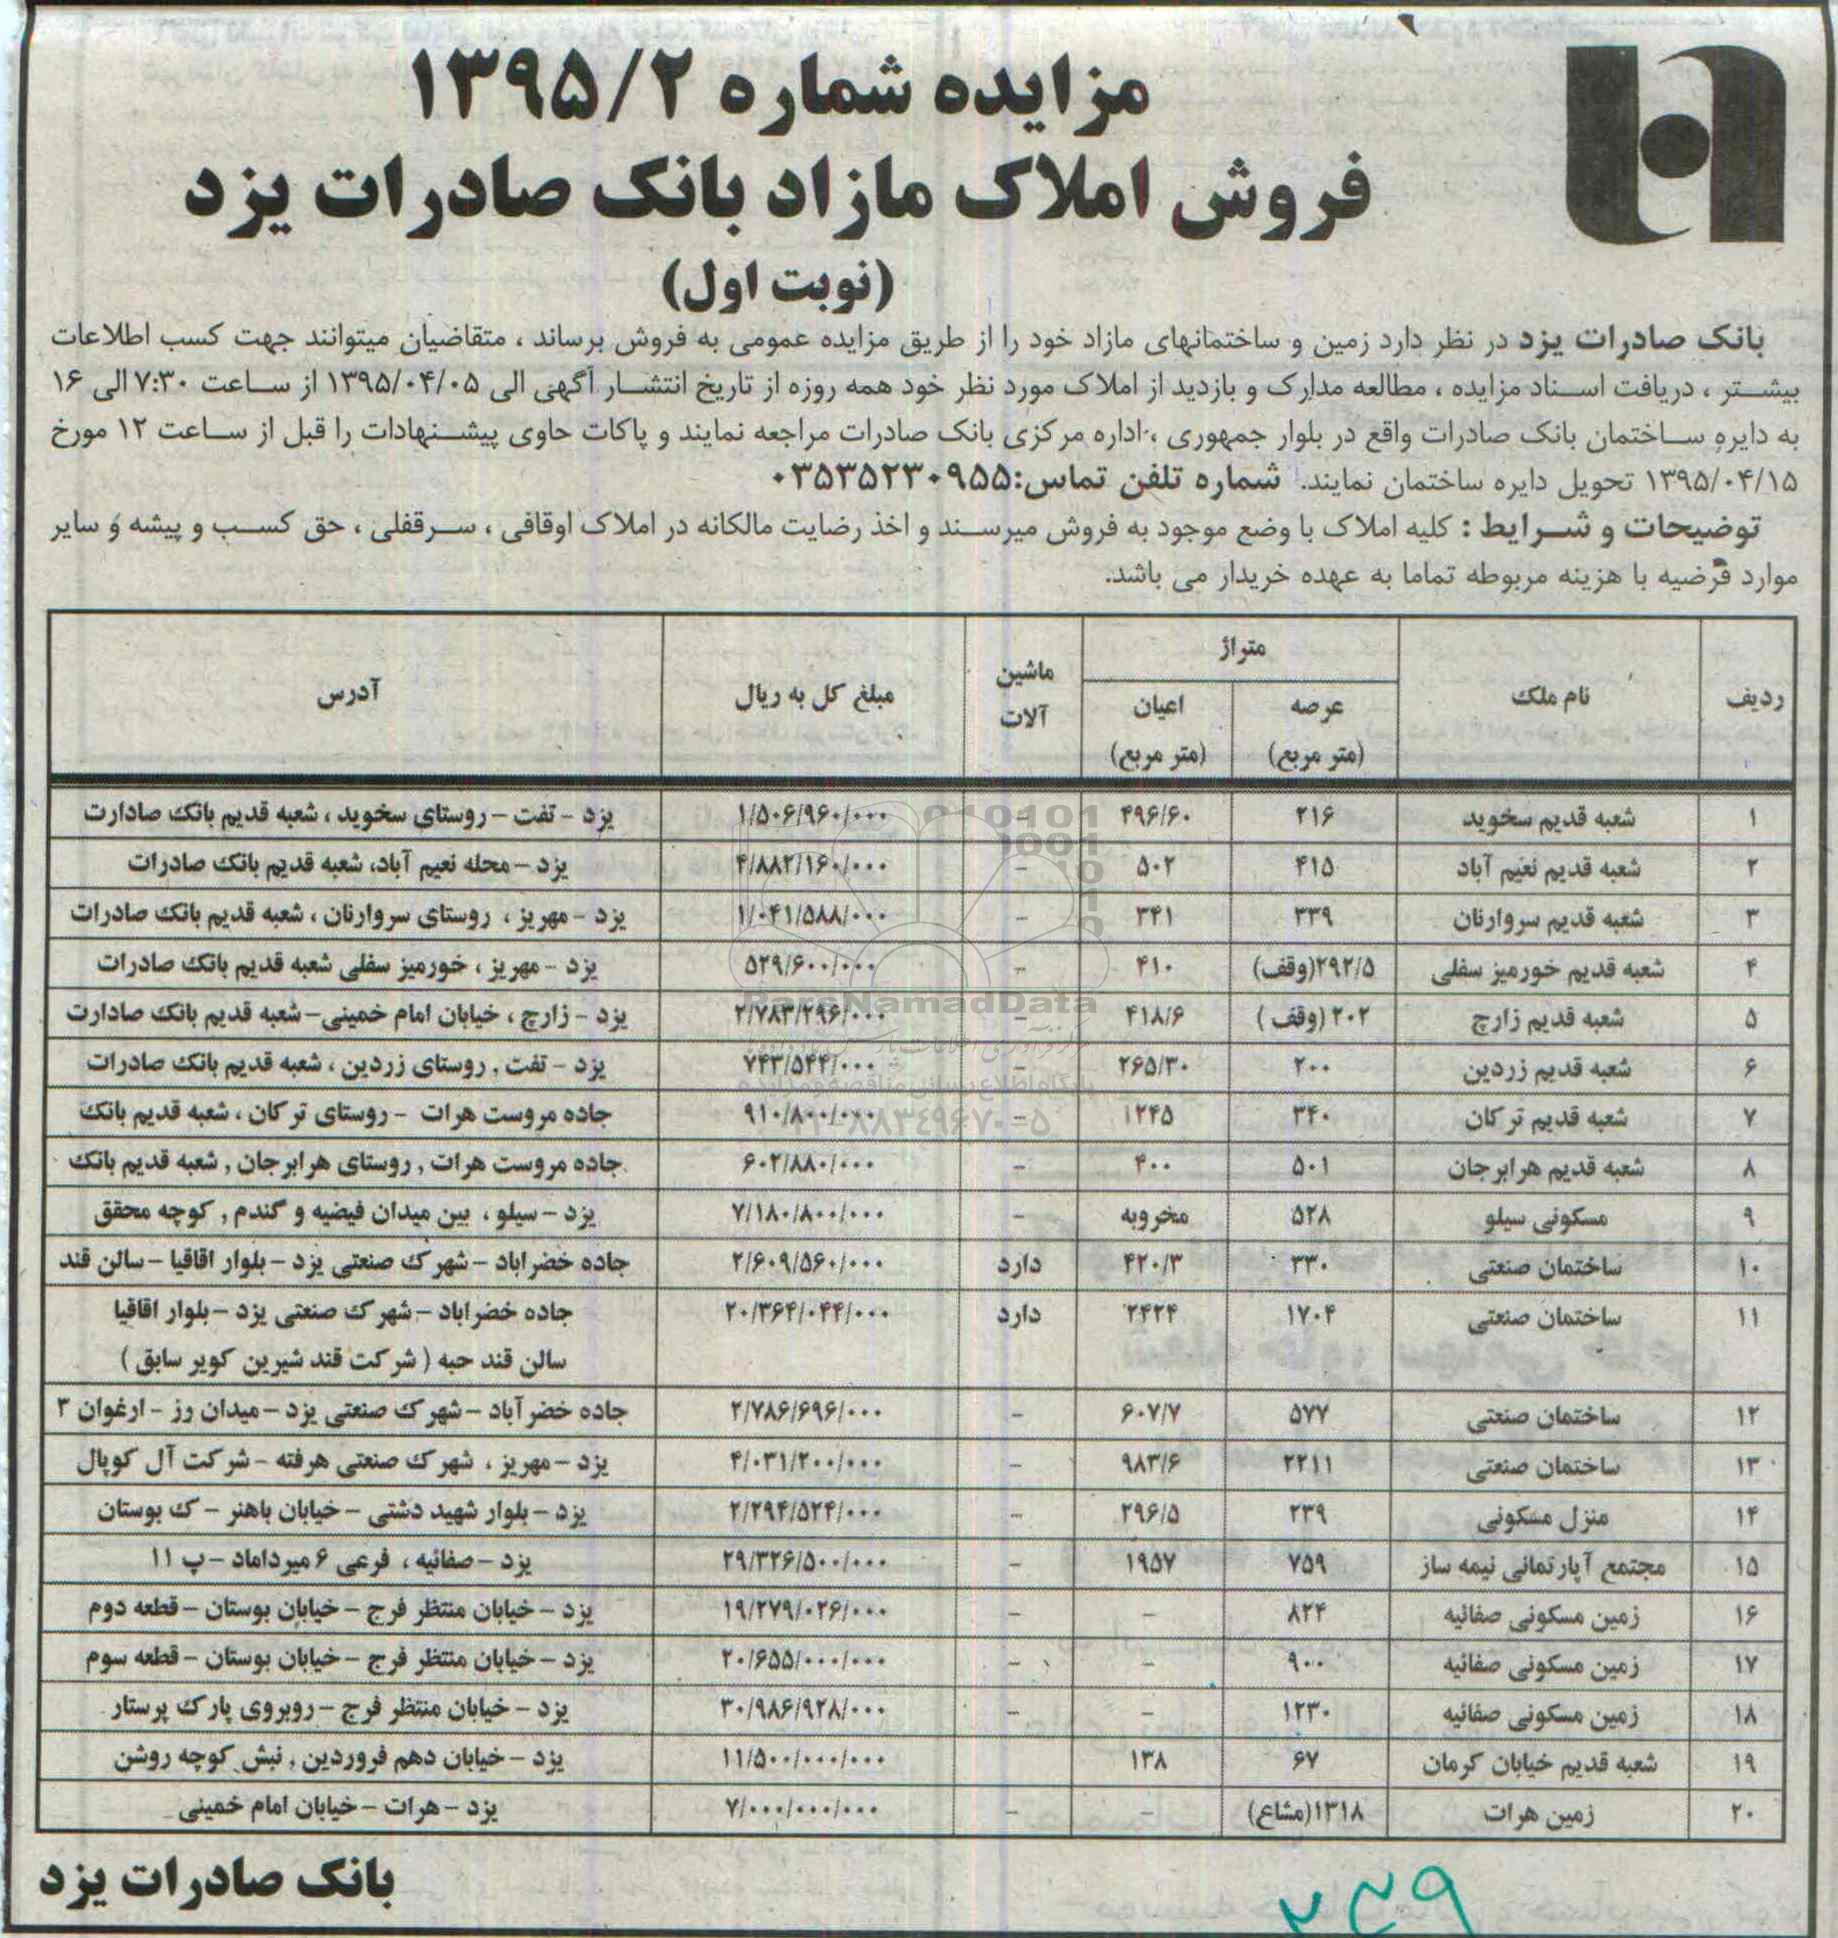 مزایده شماره ۱۳۹۵/۲
فروش املاک مازاد بانک صادرات یزد
(نوبت اول)
بانک صادرات یزد در نظر دارد زمین و ساختمانهای مازاد خود را از طریق مزایده عمومی به فروش برساند ، متقاضیان میتوانند جهت کسب اطلاعات
بیشتر ، دریافت اسناد مزایده ، مطالعه مدارک و بازدید از املاک مورد نظر خود همه روزه از تاریخ انتشار آگهی الی ۱۳۹۵/۰۴/۰۵ از ساعت ۷:۳۰ الی ۱۶
به دایره ساختمان بانک صادرات واقع در بلوار جمهوری ، اداره مرکزی بانک صادرات مراجعه نمایند و پاکات حاوی پیشنهادات را قبل از ساعت ۱۲ مورخ
۱۳۹۵/۰۴/۱۵ تحویل دایره ساختمان نمایند. شماره تلفن تماس:۰۳۵۳۵۲۳۰۹۵۵
توضیحات و شرایط : کلیه املاک با وضع موجود به فروش میرسند و اخذ رضایت مالکانه در املاک اوقافی ، سرقفلی ، حق کسب و پیشه و سایر
موارد فرضیه با هزینه مربوطه تماما به عهده خریدار می باشد.
ردیف نام ملک متراژ ماشین آلات مبلغ کل به ریال آدرس
عرصه (متر مربع) اعیان (متر مربع)
۱ شعبه قدیم سخوید ۲۱۶ ۴۹۶/۶۰ - ۱/۵۰۶/۹۶۰/۰۰۰ یزد - تفت - روستای سخوید ، شعبه قدیم بانک صادارت
۲ شعبه قدیم نعیم آباد ۴۱۵ ۵۰۲ - ۴/۸۸۲/۱۶۰/۰۰۰ یزد - محله نعیم آباد، شعبه قدیم بانک صادرات
۳ شعبه قدیم سروارنان ۳۳۹ ۳۴۱ - ۱/۰۴۱/۵۸۸/۰۰۰ یزد - مهریز ، روستای سروارنان ، شعبه قدیم بانک صادرات
۴ شعبه قدیم خورمیز سفلی ۲۹۲/۵(وقف) ۴۱۰ - ۵۲۹/۶۰۰/۰۰۰ یزد - مهریز ، خورمیز سفلی شعبه قدیم بانک صادرات
۵ شعبه قدیم زارچ ۲۰۲ (وقف ) ۴۱۸/۶ - ۲/۷۸۳/۲۹۶/۰۰۰ یزد - زارچ ، خیابان امام خمینی- شعبه قدیم بانک صادارت
۶ شعبه قدیم زردین ۲۰۰ ۲۶۵/۳۰ - ۷۴۳/۵۴۴/۰۰۰ یزد - تفت , روستای زردین ، شعبه قدیم بانک صادرات
۷ شعبه قدیم ترکان ۳۴۰ ۱۲۴۵ - ۹۱۰/۸۰۰/۰۰۰ جاده مروست هرات - روستای ترکان ، شعبه قدیم بانک
۸ شعبه قدیم هرابرجان ۵۰۱ ۴۰۰ - ۶۰۲/۸۸۰/۰۰۰ جاده مروست هرات , روستای هرابرجان , شعبه قدیم بانک
۹ مسکونی سیلو ۵۲۸ مخروبه - ۷/۱۸۰/۸۰۰/۰۰۰ یزد - سیلو ، بین میدان فیضیه و گندم , کوچه محقق
۱۰ ساختمان صنعتی ۳۳۰ ۴۲۰/۳ دارد ۲/۶۰۹/۵۶۰/۰۰۰ جاده خضراباد - شهرک صنعتی یزد - بلوار اقاقیا - سالن قند
۱۱ ساختمان صنعتی ۱۷۰۴ ۲۴۲۴ دارد ۲۰/۳۶۴/۰۴۴/۰۰۰ جاده خضراباد - شهرک صنعتی یزد - بلوار اقاقیا
سالن قند حبه ( شرکت قند شیرین کویر سابق )
۱۲ ساختمان صنعتی ۵۷۷ ۶۰۷/۷ - ۲/۷۸۶/۶۹۶/۰۰۰ جاده خضرآباد - شهرک صنعتی یزد - میدان رز - ارغوان ۳
۱۳ ساختمان صنعتی ۲۲۱۱ ۹۸۳/۶ - ۴/۰۳۱/۲۰۰/۰۰۰ یزد - مهریز ، شهرک صنعتی هرفته - شرکت آل کوپال
۱۴ منزل مسکونی ۲۳۹ ۲۹۶/۵ - ۲/۲۹۴/۵۲۴/۰۰۰ یزد - بلوار شهید دشتی - خیابان باهنر - ک بوستان
۱۵ مجتمع آپارتمانی نیمه ساز ۷۵۹ ۱۹۵۷ - ۲۹/۳۲۶/۵۰۰/۰۰۰ یزد - صفائیه ، فرعی ۶ میرداماد - پ ۱۱
۱۶ زمین مسکونی صفائیه ۸۲۴ - - ۱۹/۲۷۹/۰۲۶/۰۰۰ یزد - خیابان منتظر فرج - خیابان بوستان - قطعه دوم
۱۷ زمین مسکونی صفائیه ۹۰۰ - - ۲۰/۶۵۵/۰۰۰/۰۰۰ یزد - خیابان منتظر فرج - خیابان بوستان - قطعه سوم
۱۸ زمین مسکونی صفائیه ۱۲۳۰ - - ۳۰/۹۸۶/۹۲۸/۰۰۰ یزد - خیابان منتظر فرج - روبروی پارک پرستار
۱۹ شعبه قدیم خیابان کرمان ۶۷ ۱۳۸ ۱۱/۵۰۰/۰۰۰/۰۰۰ یزد - خیابان دهم فروردین , نبش کوچه روشن
۲۰ زمین هرات ۱۳۱۸(مشاع) - - ۷/۰۰۰/۰۰۰/۰۰۰ یزد - هرات - خیابان امام خمینی
ParsNamadData
پایگاه اطلاع رسانی مناقصه و مزایده
۰۲۱-۸۸۳۴۹۶۷۰-۵
بانک صادرات یزد